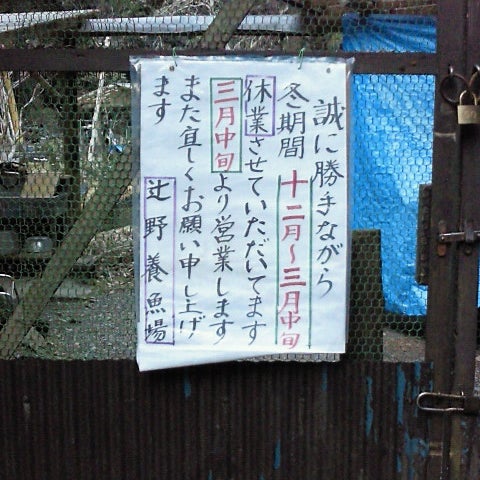 誠に勝手ながら
冬期間 十二月〜三月中旬
休業させていただいてます
三月中旬より営業します
また宜しくお願い申し上げ
ます
辻野養魚場